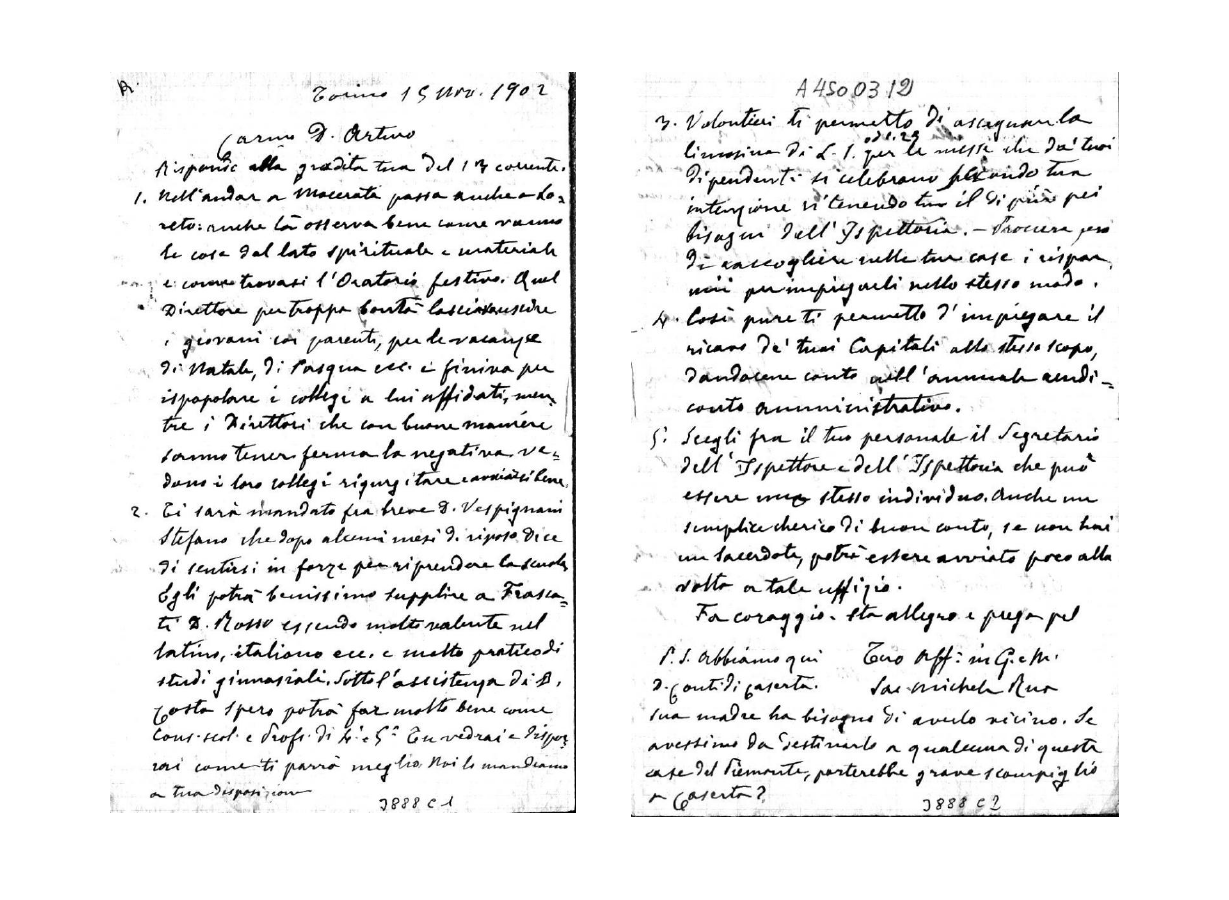 R.
Torino 15 Nov. 1902
Carmo D. Arturo
Rispondo alla gradita tua del 13 corrente.
1. Nell'andar a Macerata passa anche a Lo=
reto: anche là osserva bene come vanno
le cose dal lato spirituale e materiale
e come trovasi l'Oratorio festivo. Quel
Direttore per troppa bontà lasciava uscire
i giovani coi parenti, per le vacanze
di Natale, di Pasqua ecc. e finiva per
ispopolare i collegi a lui affidati, men=
tre i Direttori che con buone maniere
sanno tener ferma la negativa ve=
dono i loro collegi rigurgitare e avviarsi bene.
2. Ti sarà mandato fra breve D. Vespignani
Stefano che dopo alcuni mesi di riposo dice
di sentirsi in forze per riprendere la scuola
Egli potrà benissimo supplire a Frasca=
ti D. Rosso essendo molto valente nel
latino, italiano ecc. e molto pratico di
studi ginnasiali. Sotto l'assistenza di D.
Costa spero potrà far molto bene come
Cons. scol. e Profs. di 4ª e 5ª Tu vedrai e dispor=
rai come ti parrà meglio. Noi lo mandiamo
a tua disposizione
3888 C 1
A 4500312
3. Volontieri ti permetto di assegnare la
limosina di L. 1. per le messe che da' tuoi
od 1.25
dipendenti si celebrano secondo tua
intenzione ritenendo tu il di più pei
bisogni dell'Ispettoria. — Procura però
di raccogliere nelle tue case i rispar
mii per impiegarli nello stesso modo.
4. Così pure ti permetto d'impiegare il
ricavo de' tuoi Capitali allo stesso scopo,
dandocene conto nell'annuale rendi=
conto amministrativo.
5. Scegli fra il tuo personale il Segretario
dell'Ispettore e dell'Ispettoria che può
essere uno stesso individuo. Anche un
semplice cherico di buon conto, se non hai
un sacerdote, potrà essere avviato poco alla
volta a tale uffizio.
Fa coraggio. sta allegro e prega pel
Tuo Aff: in G. e M.
Sac. Michele Rua
P.S. Abbiamo qui
D. Conti di Caserta.
sua madre ha bisogno di averlo vicino. Se
avessimo da destinarlo a qualcuna di queste
case del Piemonte, porterebbe grave scompiglio
a Caserta?
3888 C 2